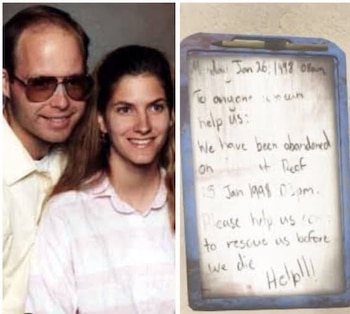 Monday Jan 26; 1998 08am
To anyone can
help us:
We have been abandoned
on Reef
25 Jan 1998 03pm.
Please help us
to rescue us before
we die
Help!!!